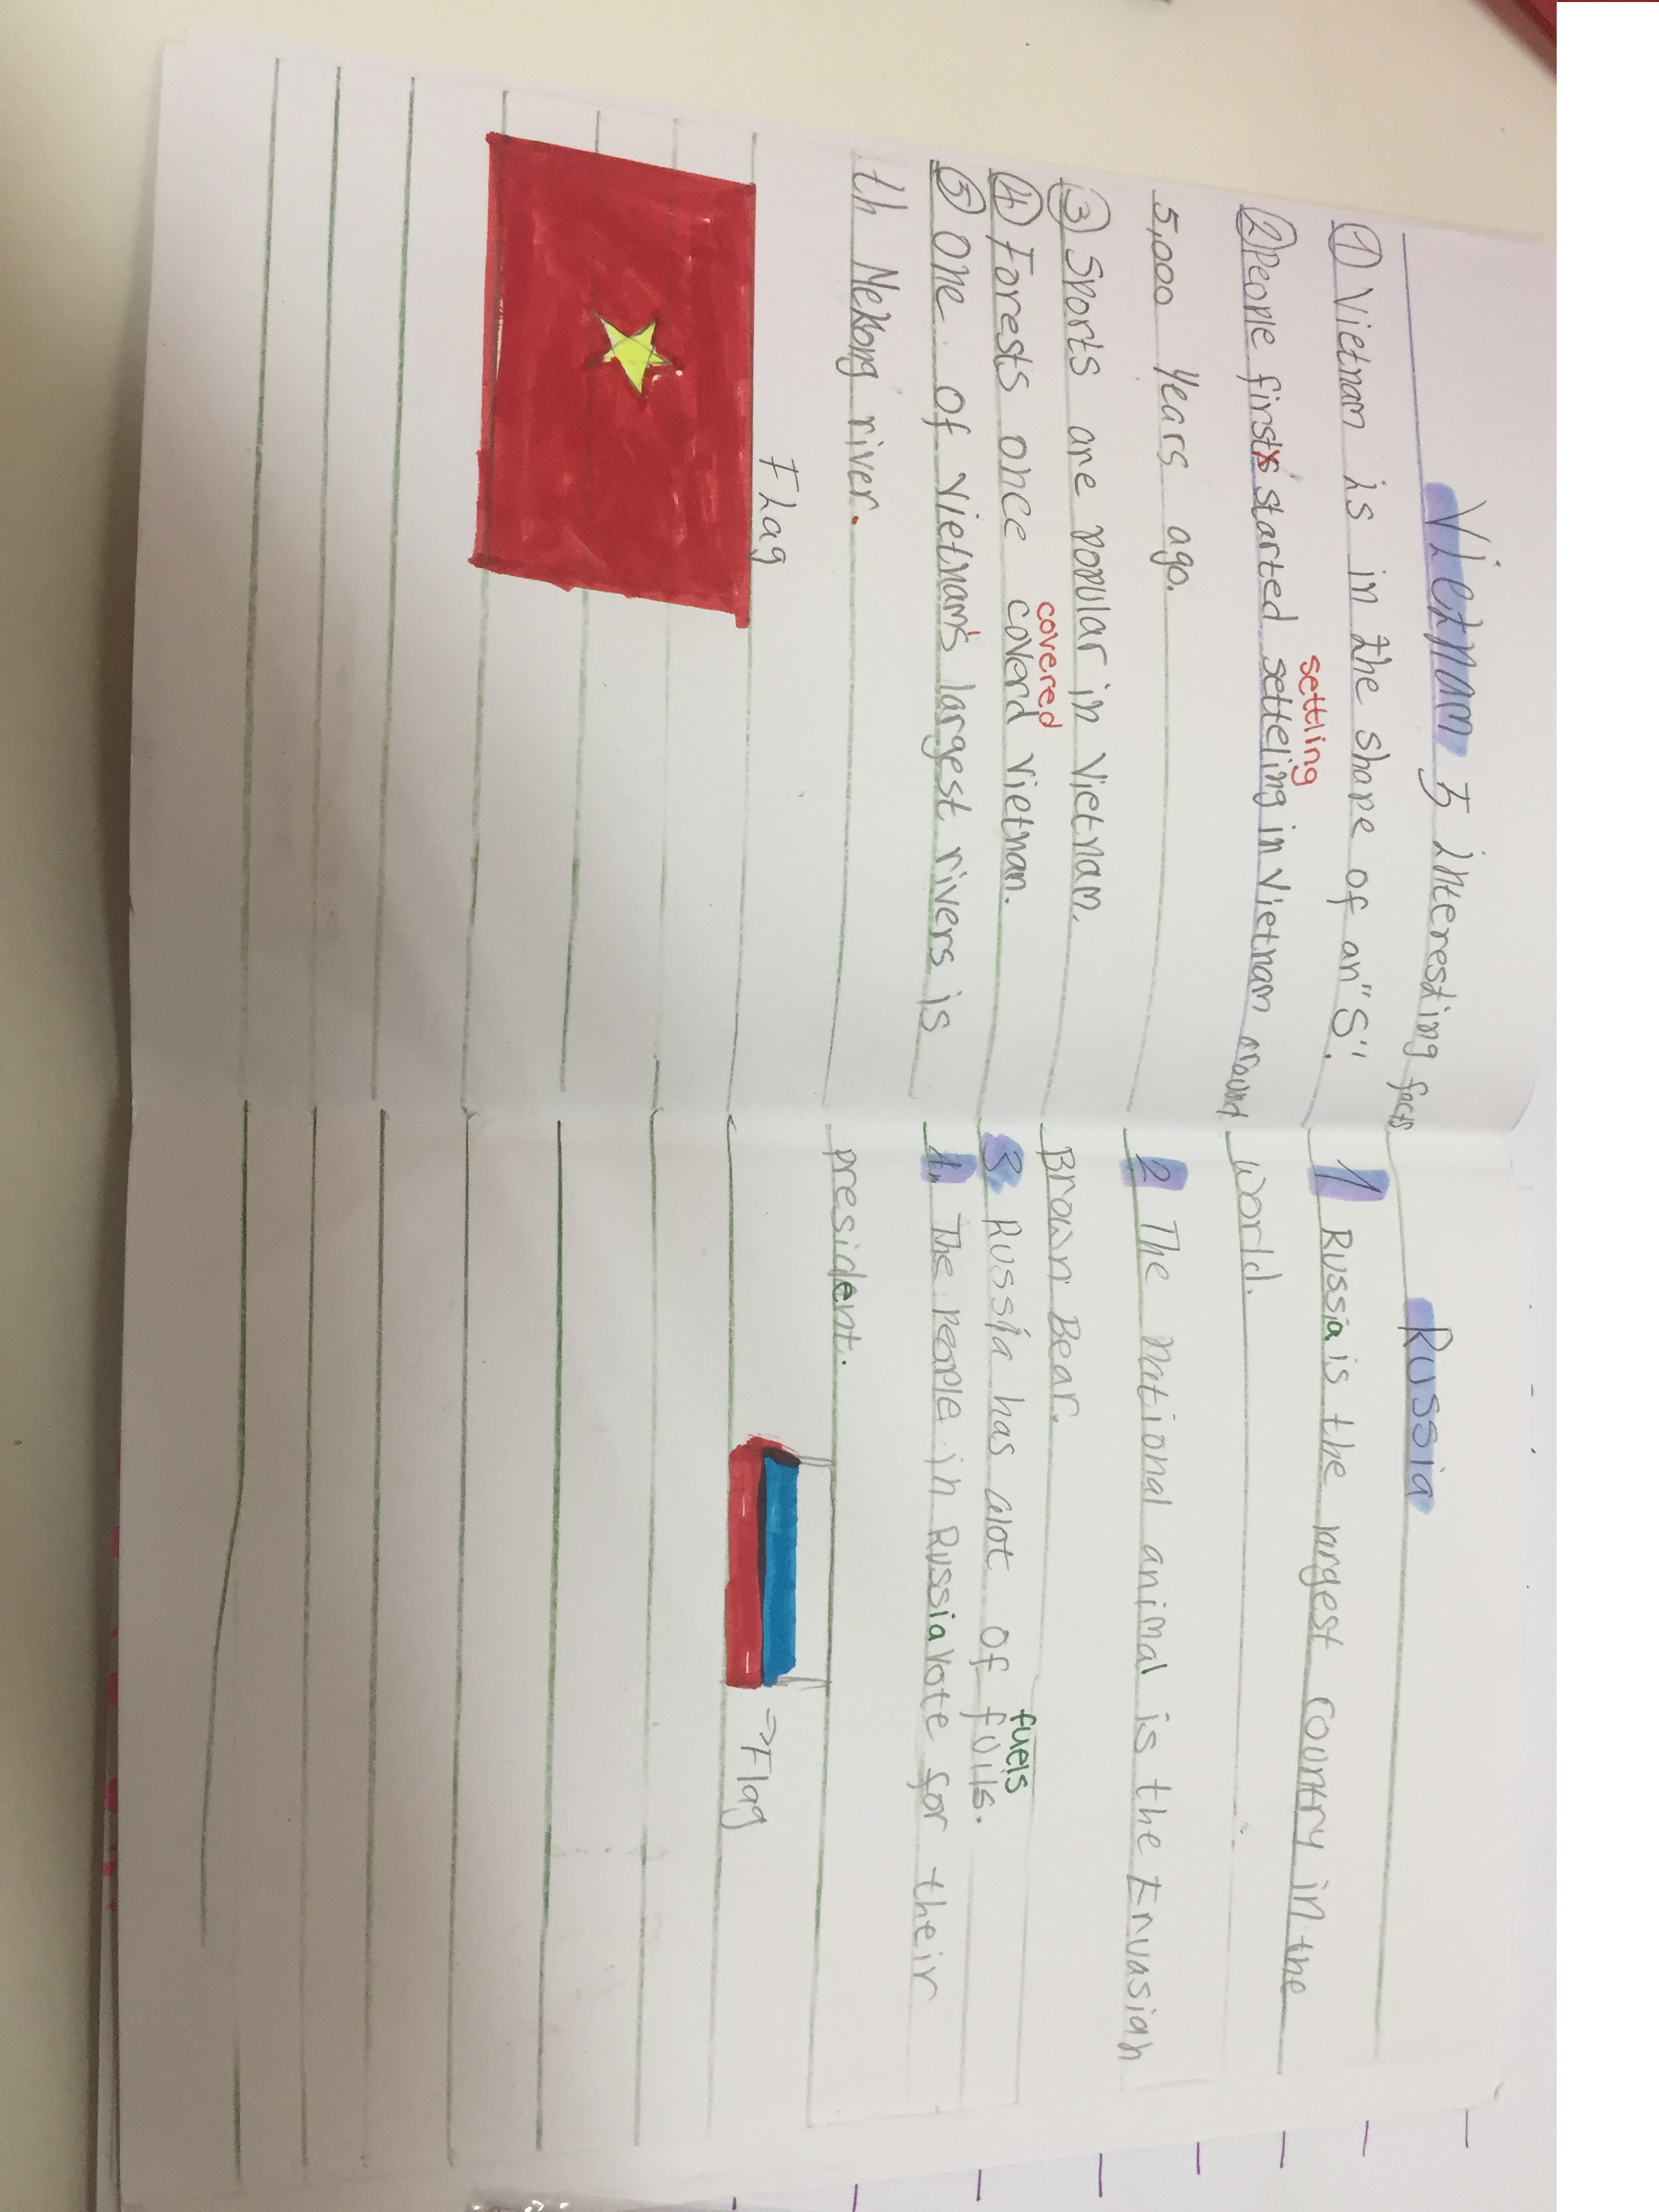 Vietnam 5 interesting facts
① Vietnam is in the shape of an "S".
settling
② People firsts started setteling in Vietnam around
5,000 years ago.
③ Sports are popular in Vietnam.
covered
④ Forests once coverd Vietnam.
⑤ One of Vietnam's largest rivers is
th Mekong river.
Flag
Russia
1 Russia is the largest country in the
world.
2 The national animal is the Eruasian
Brown Bear.
fuels
3. Russia has alot of fuils.
4. The people in Russia vote for their
president.
⇒Flag